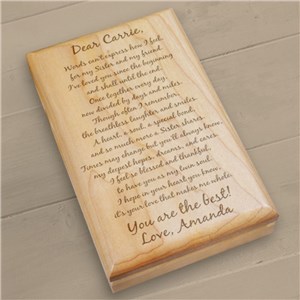 Dear Carrie,
Words can't express how I feel,
for my Sister and my friend.
I've loved you since the beginning
and shall until the end.
Once together every day,
now divided by days and miles.
Though often I remember,
the breathless laughter and smiles.
A heart, a soul, a special bond,
and so much more a Sister shares.
Times may change but you'll always know,
my deepest hopes, dreams, and cares.
I feel so blessed and thankful,
to have you as my twin soul.
I hope in your heart you know,
it's your love that makes me whole.
You are the best!
Love, Amanda